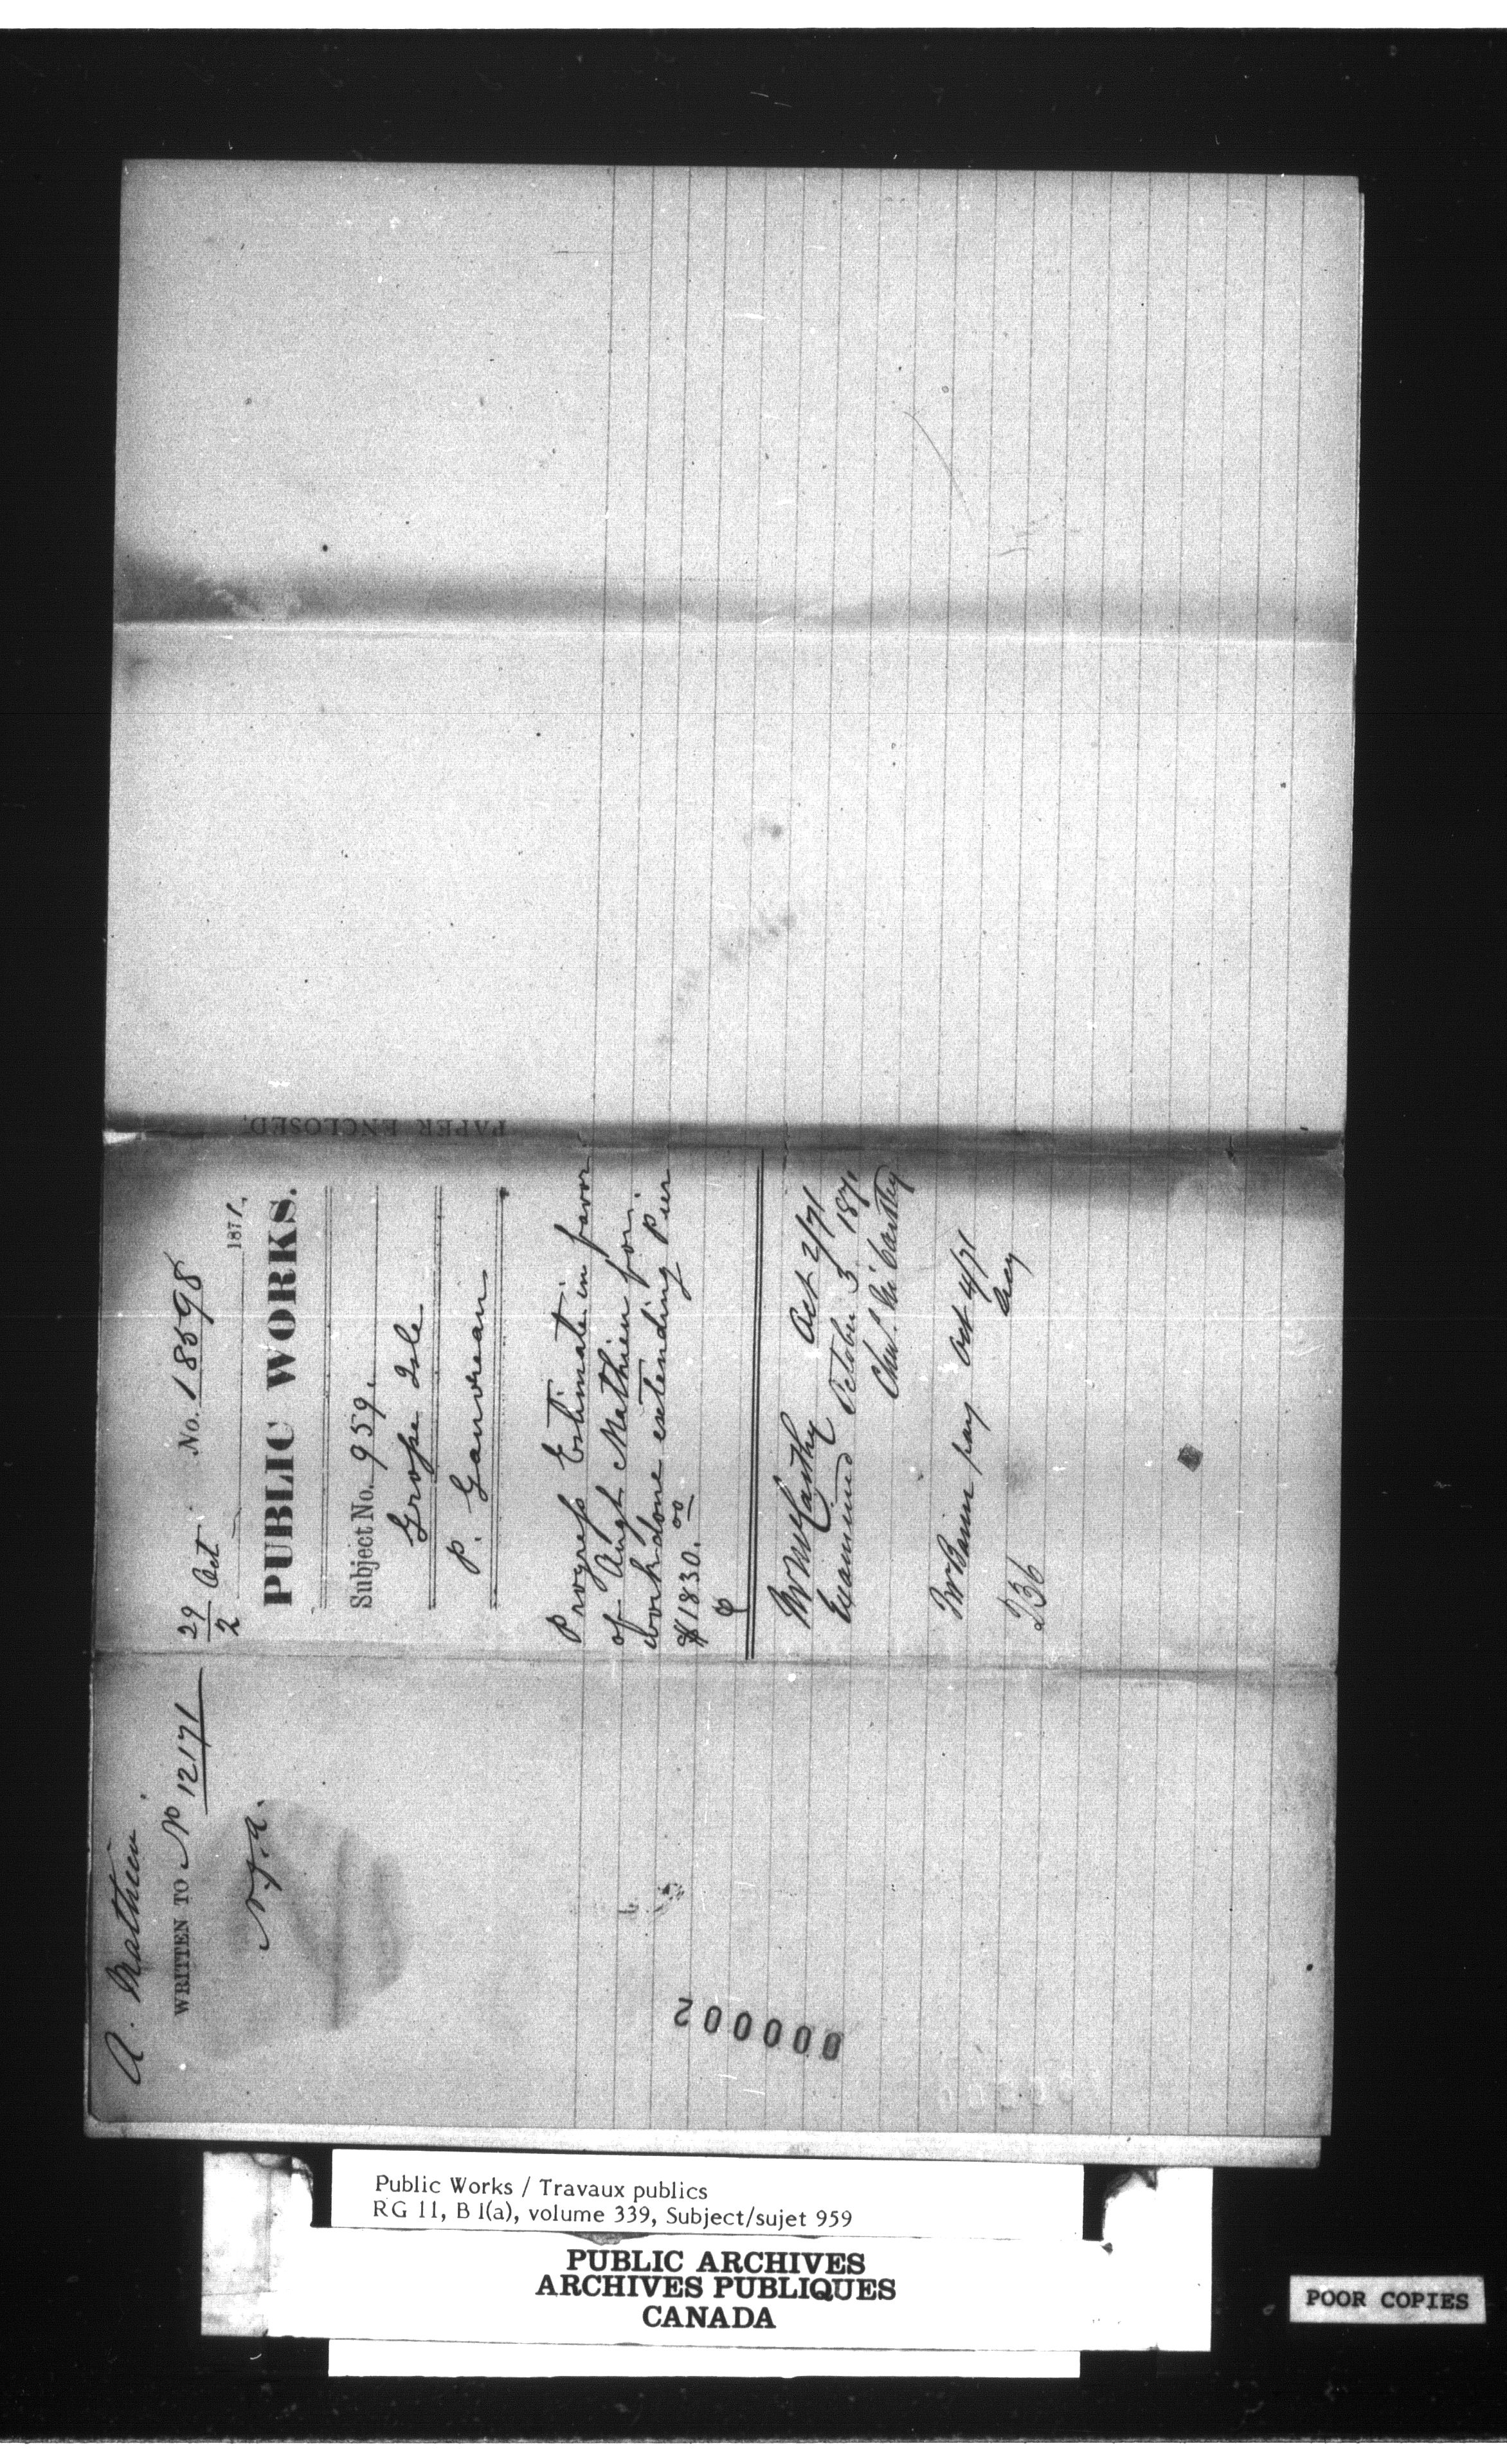 A. Mathieu.
WRITTEN TO No 12171
29/2 Oct No. 18598
1871.
PUBLIC WORKS.
Subject No. 959.
Grosse Isle
P. Gauvreau
PAPER ENCLOSED.
Progress Estimate in favor
of Augt Mathieu for
work done extending Pier
$1830.00
Mr McCarthy Oct 2/71
Examined October 3 1871
Chs. McCarthy
Mr Baine pay Oct 4/71
236
000002
Public Works / Travaux publics
RG 11, B 1(a), volume 339, Subject/sujet 959
PUBLIC ARCHIVES
ARCHIVES PUBLIQUES
CANADA
POOR COPIES